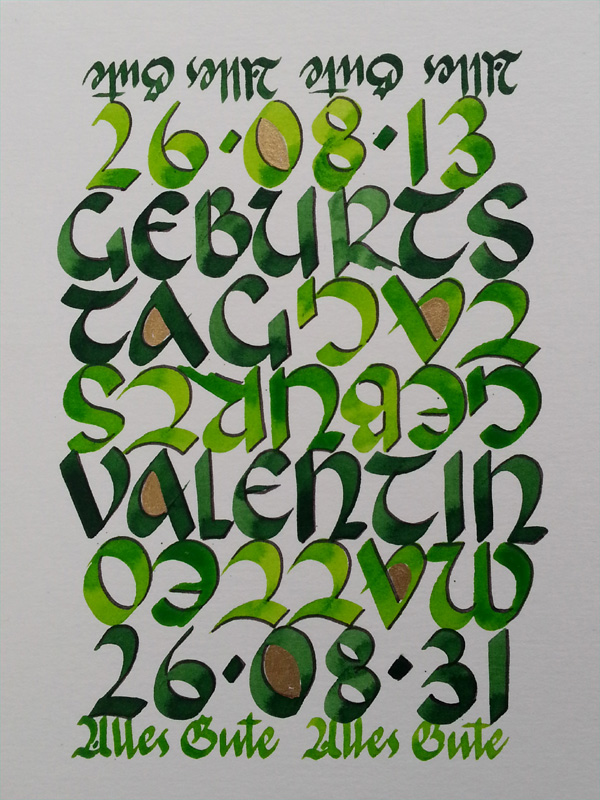 Alles Gute Alles Gute
26·08·13
GEBURTS
TAG TAG
GEBURTS
VALENTIN
MATTEO
26·08·31
Alles Gute Alles Gute